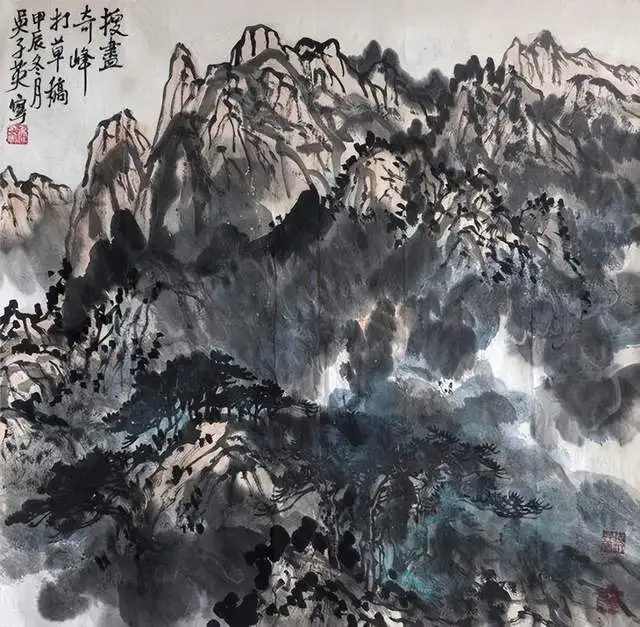 搜盡
奇峰
打草稿
甲辰冬月
吳子英寫